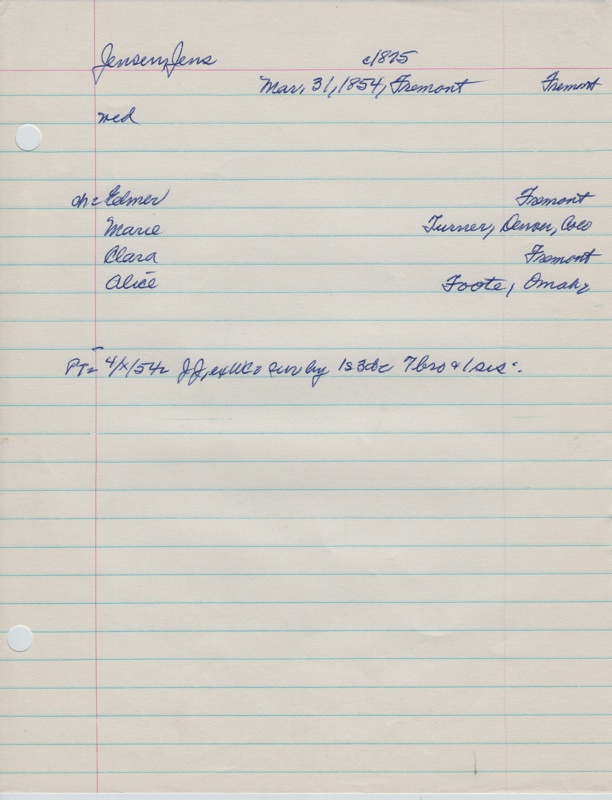 Jensen, Jens c1875
Mar. 31, 1854, Fremont Fremont
wed
ch = Elmer Fremont
Marie Turner, Denver, Colo
Clara Fremont
Alice Foote, Omaha
PT= 4/ /54= JJ, ex WC= surv by 1s 3d= 7bro & 1 sis.